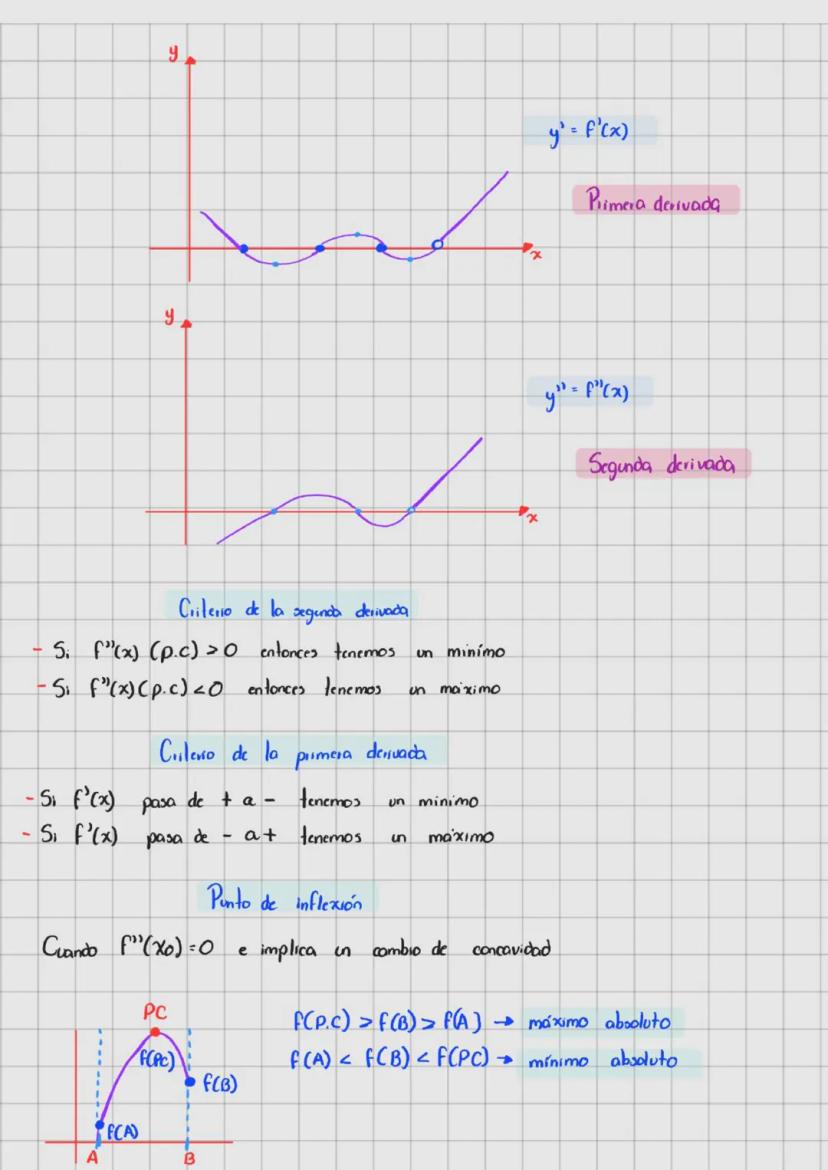 y
y' = f'(x)
Primera derivada
x
y
y'' = f''(x)
Segunda derivada
x
Criterio de la segunda derivada
- Si f''(x) (p.c) > 0 entonces tenemos un minímo
- Si f''(x) (p.c) < 0 entonces tenemos un máximo
Criterio de la primera derivada
- Si f'(x) pasa de + a - tenemos un minimo
- Si f'(x) pasa de - a + tenemos un máximo
Punto de inflexión
Cuando f''(x0) = 0 e implica un cambio de concavidad
PC
f(P.C) > f(B) > f(A) → máximo absoluto
f(PC)
f(A) < f(B) < f(PC) → mínimo absoluto
f(B)
f(A)
A B